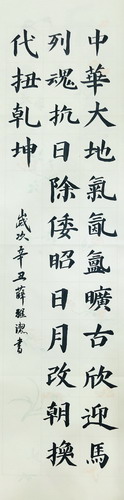 中華大地氣氤氳曠古欣迎馬
列魂抗日除倭昭日月改朝換
代扭乾坤
歲次辛丑薛 書